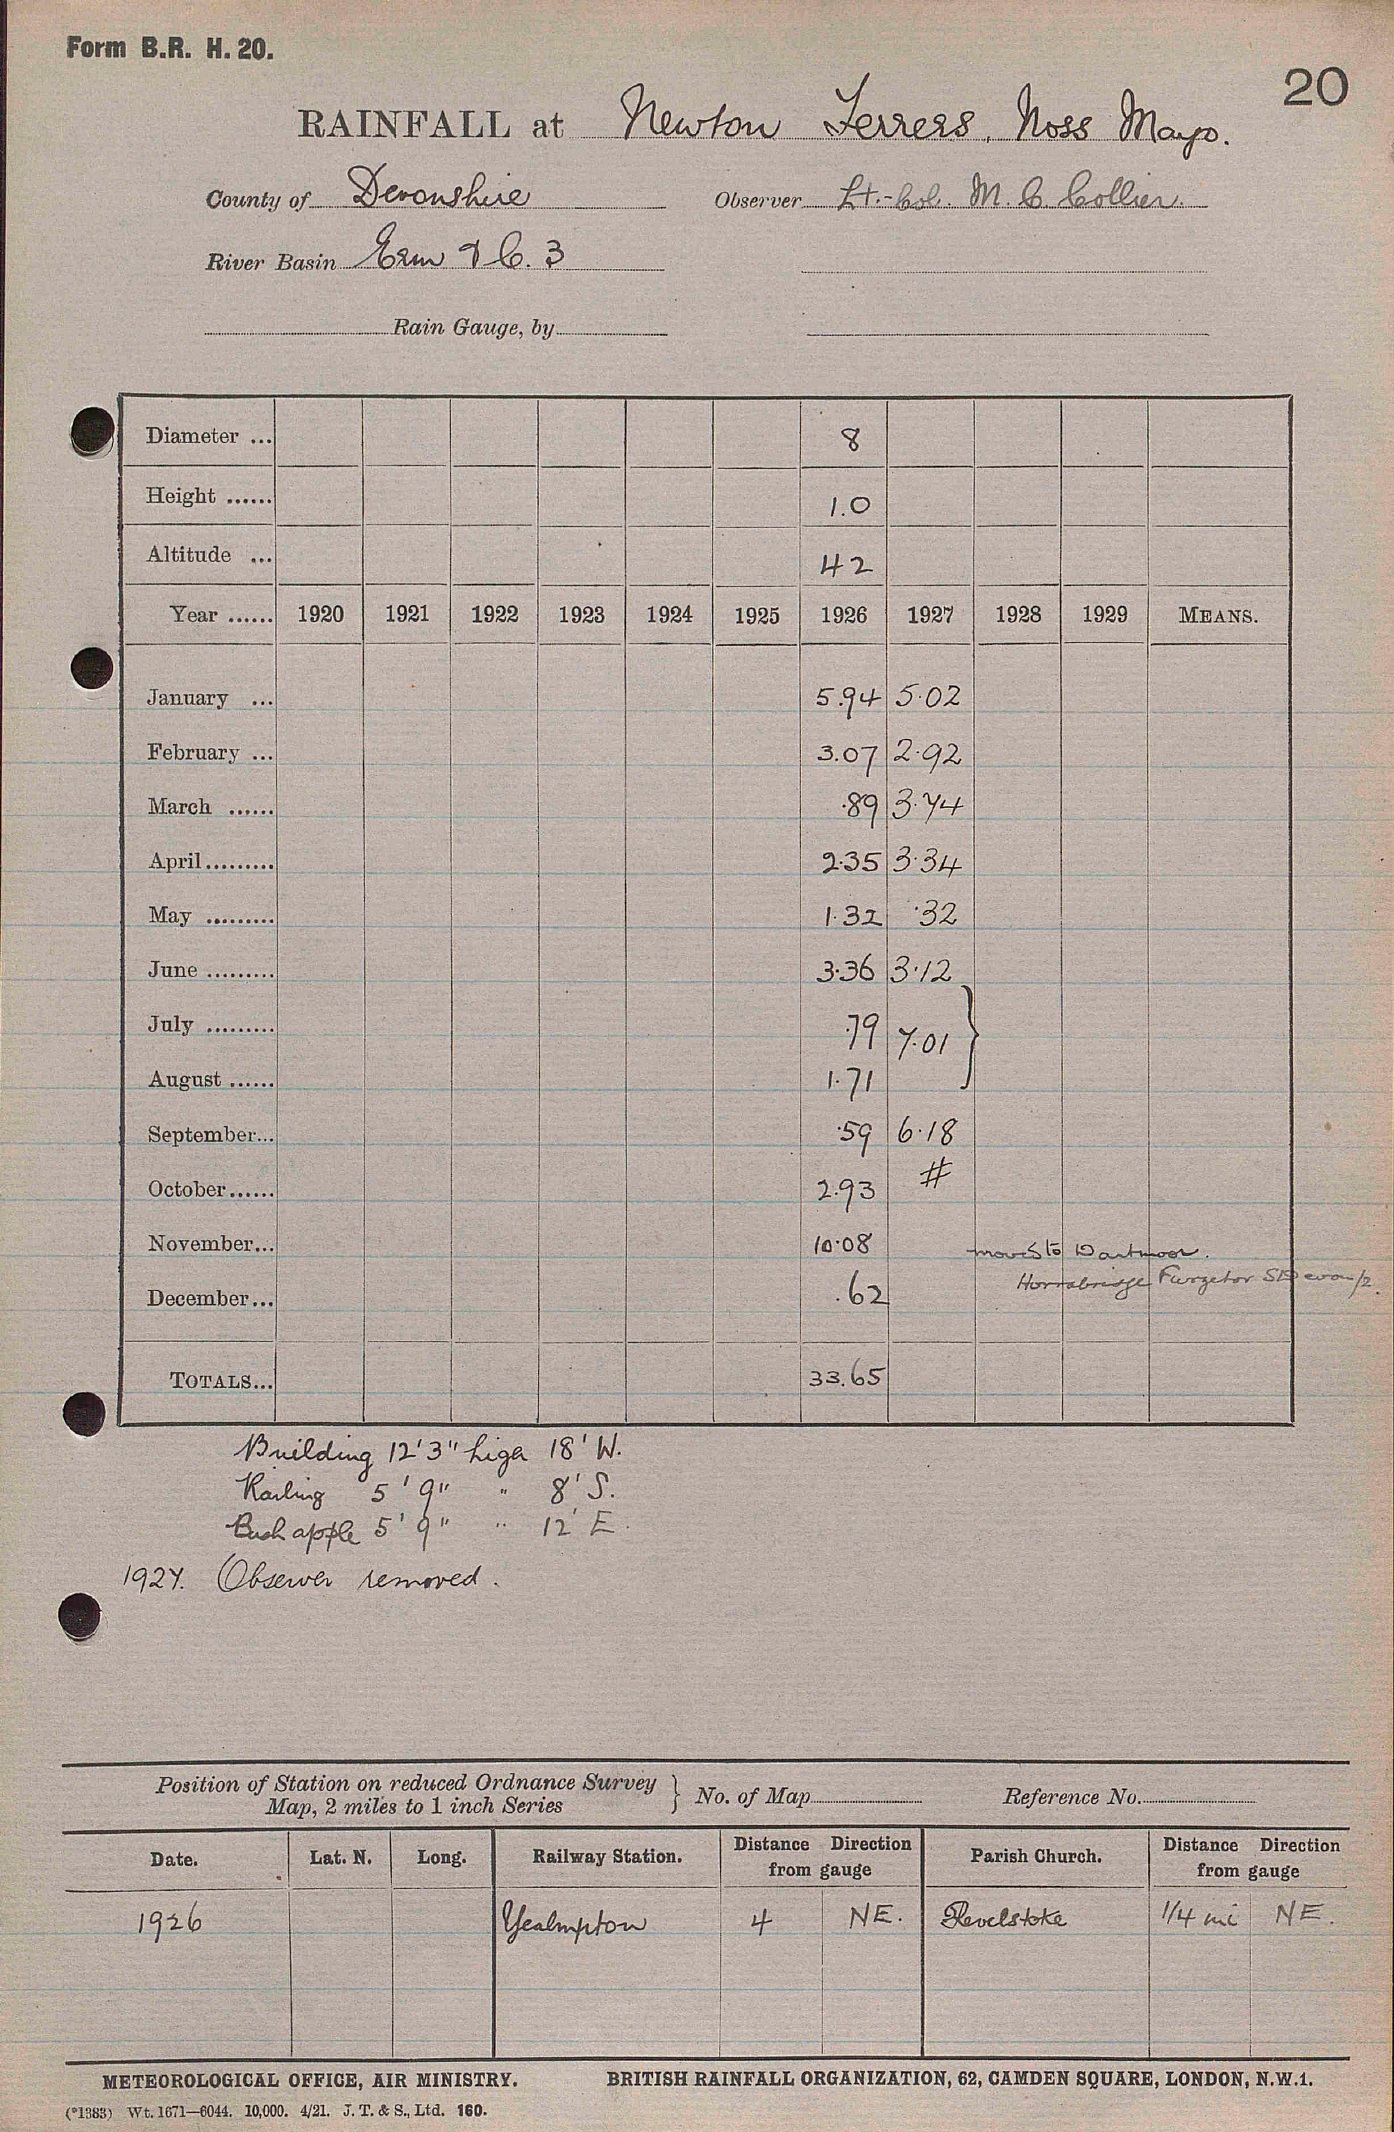 Form B.R. H. 20.
20
RAINFALL at Newton Ferrers, Noss Mayo.
County of Devonshire Observer Lt.-Col. M. C. Collier.
River Basin Erm & C. 3
Rain Gauge, by
Diameter ... 8
Height ...... 1.0
Altitude ... 42
Year ...... 1920 1921 1922 1923 1924 1925 1926 1927 1928 1929 MEANS.
January ... 5.94 5.02
February ... 3.07 2.92
March ...... .89 3.74
April......... 2.35 3.34
May ......... 1.32 .32
June ......... 3.36 3.12
July ......... .79 7.01 }
August ...... 1.71
September... .59 6.18
October...... 2.93 #
November... 10.08 moves to Dartmoor.
December... .62 Horrabridge Furzetor SDevon/2.
TOTALS... 33.65
Building 12'3" high 18' W.
Railing 5'9" " 8' S.
Bush apple 5'9" " 12' E.
1927. Observer removed.
Position of Station on reduced Ordnance Survey
Map, 2 miles to 1 inch Series } No. of Map Reference No.
Date. Lat. N. Long. Railway Station. Distance Direction from gauge Parish Church. Distance Direction from gauge
1926 Yealmpton 4 NE. Revelstoke 1/4 mi NE.
METEOROLOGICAL OFFICE, AIR MINISTRY. BRITISH RAINFALL ORGANIZATION, 62, CAMDEN SQUARE, LONDON, N.W.1.
(*1383) Wt. 1671—6044. 10,000. 4/21. J. T. & S., Ltd. 160.